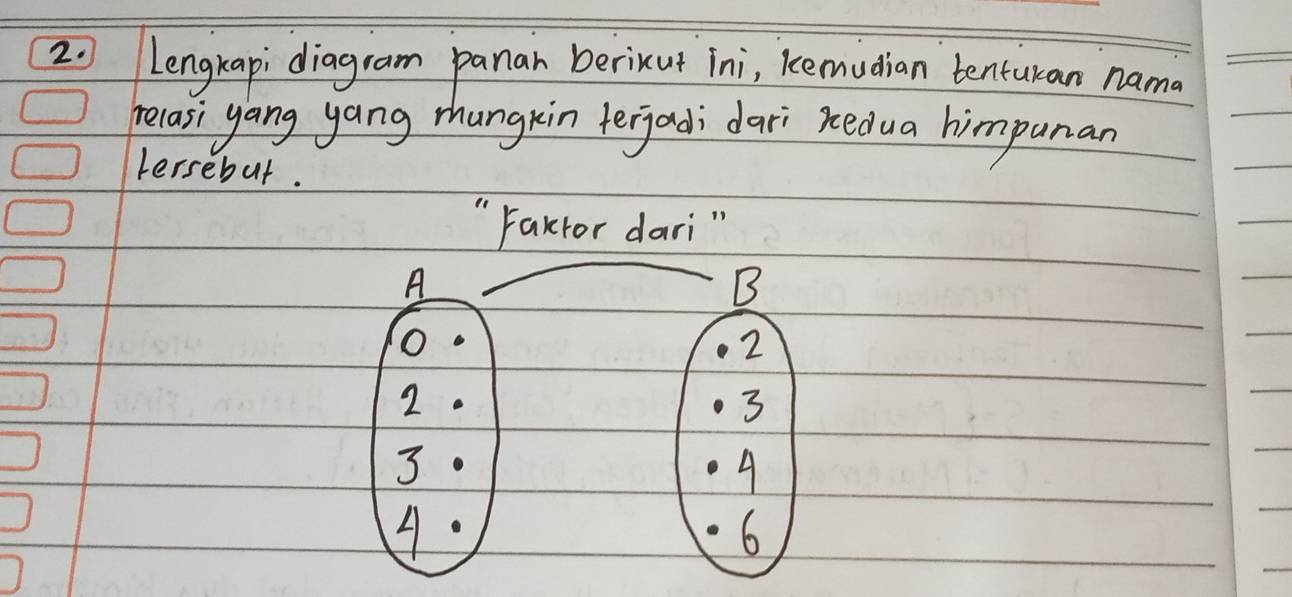 2. Lengkapi diagram panah berikut ini, kemudian tentukan nama
relasi yang yang mungkin terjadi dari kedua himpunan
tersebut.
"Faktor dari"
A B
0 . . 2
2 . . 3
3 . . 4
4 . . 6